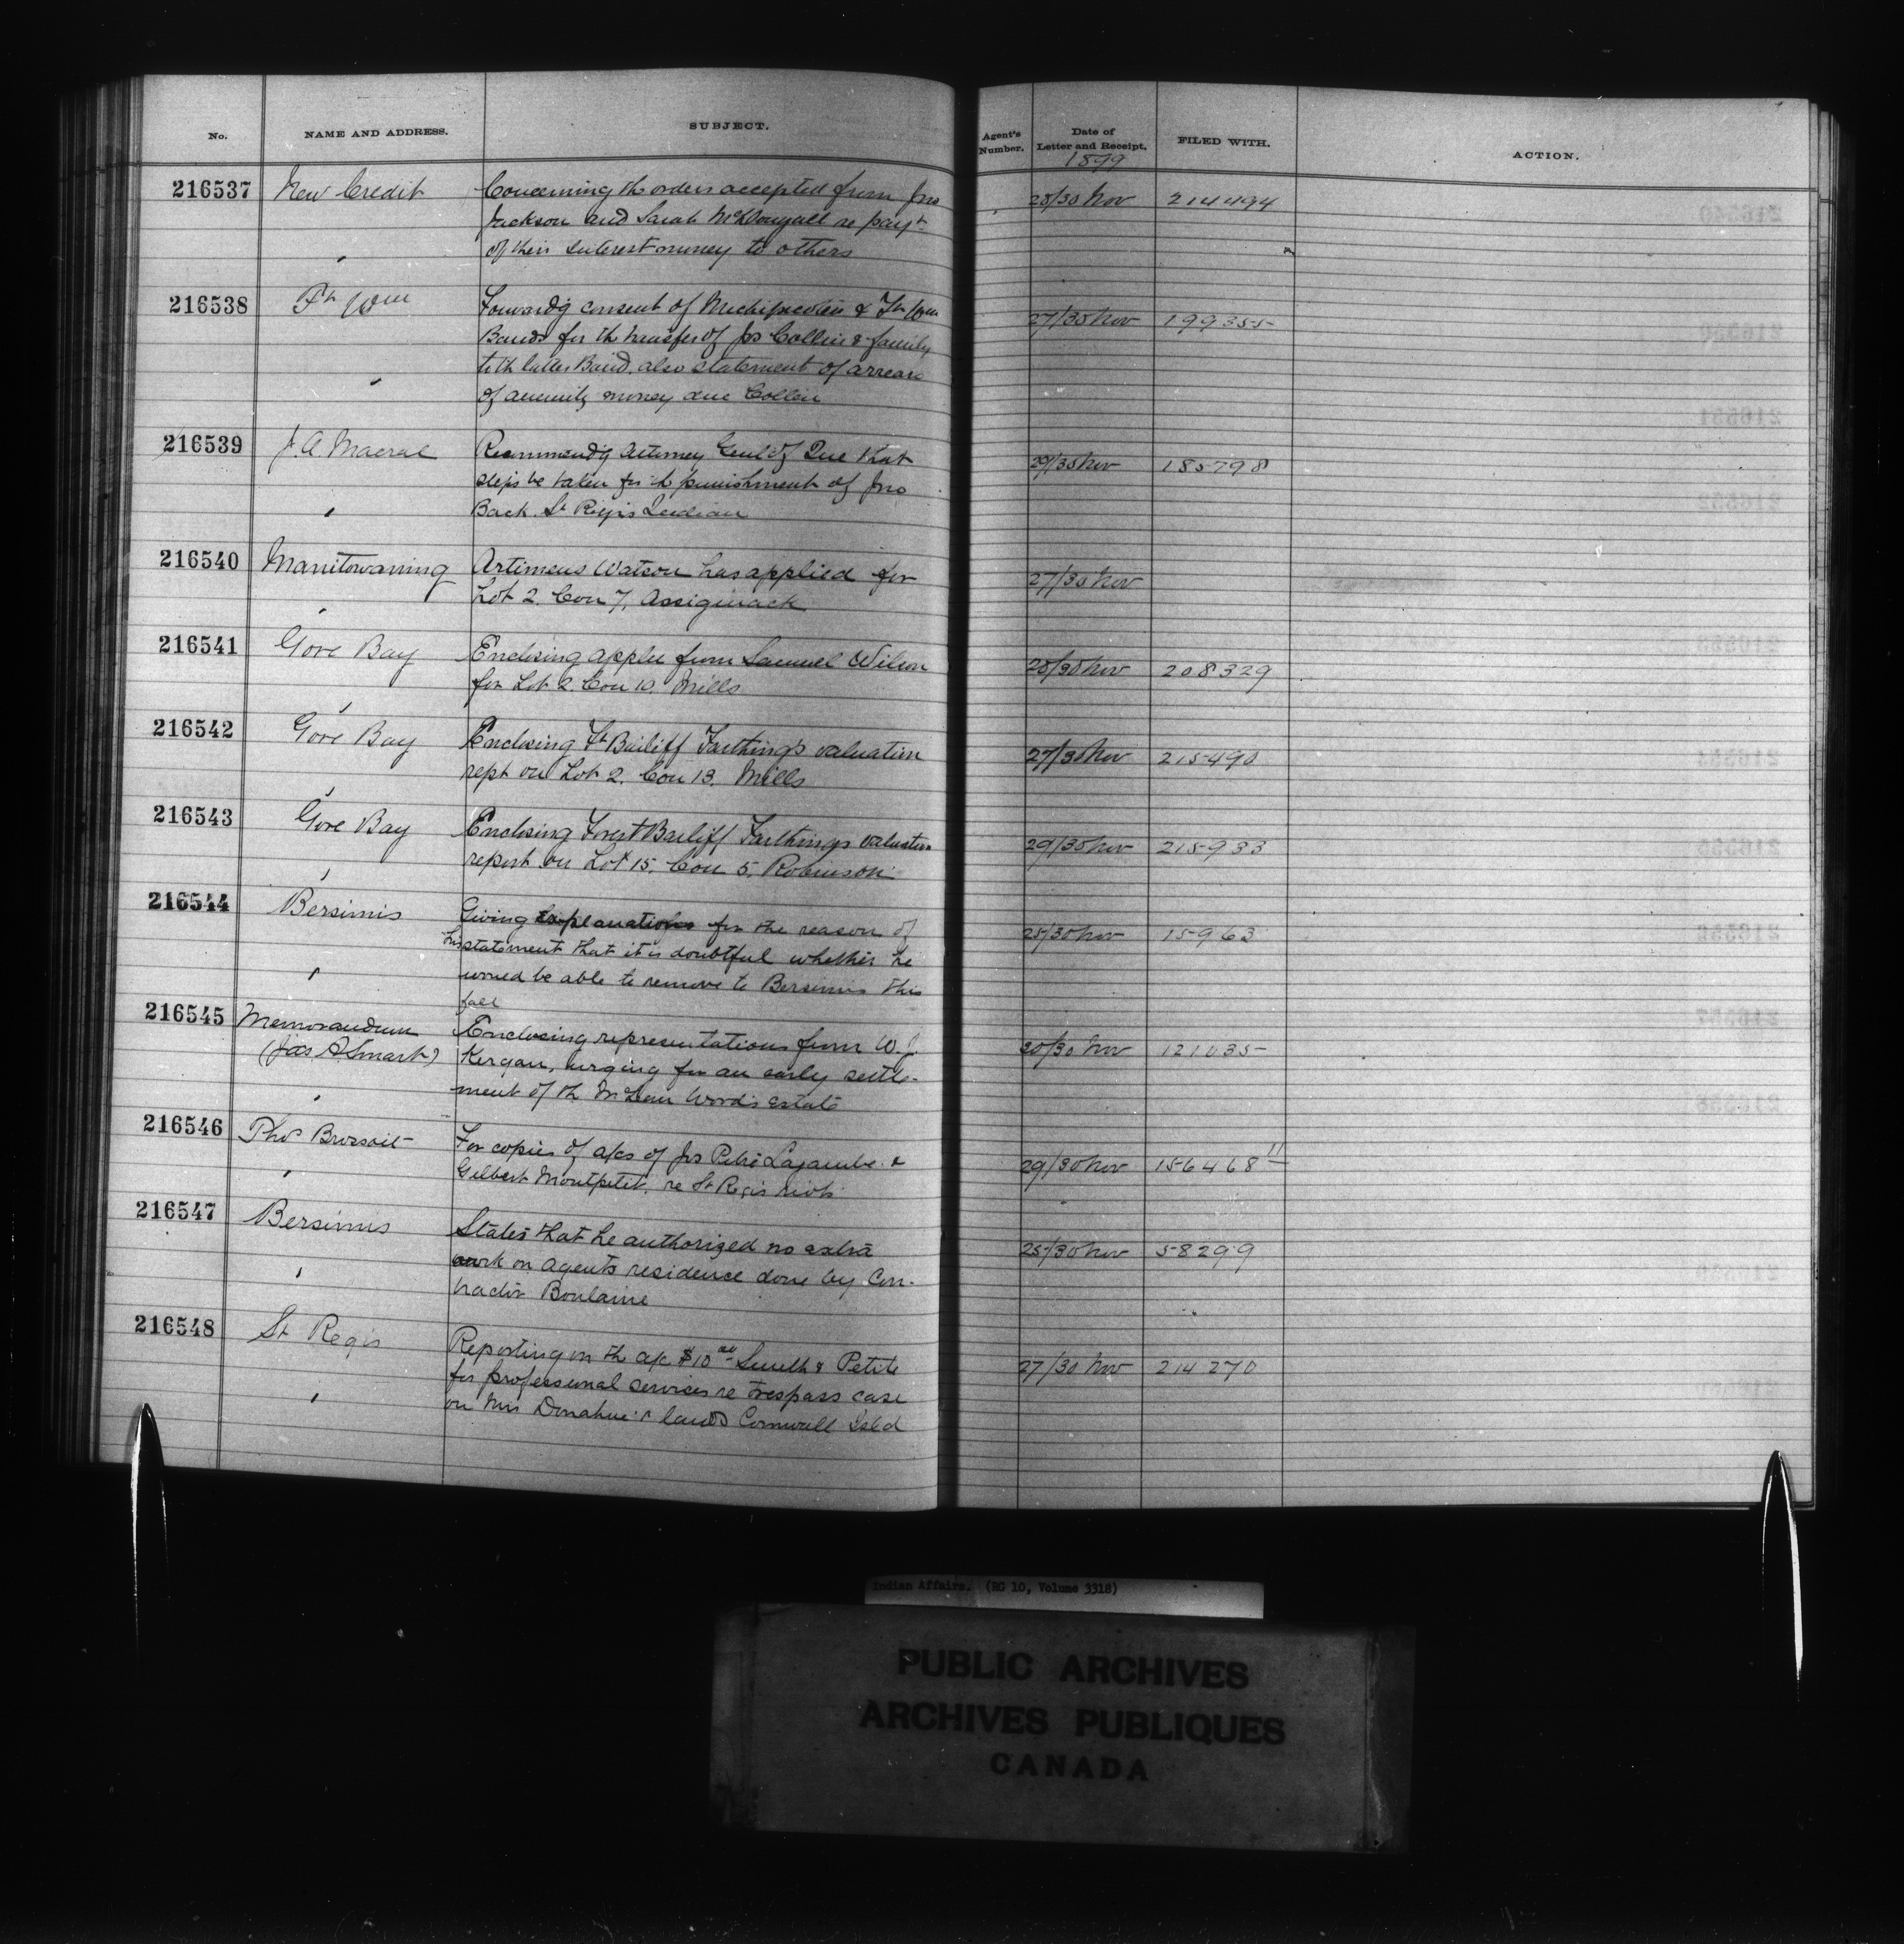 No. NAME AND ADDRESS. SUBJECT. Agent's Number. Date of Letter and Receipt. FILED WITH. ACTION.
1899
216537 New Credit Concerning the orders accepted from Jno 28/30 Nov 214494
Jackson and Sarah McDougall re payt
of their interest money to others
216538 Ft Wm Forwardg consent of Michipicoten & Ft Wm 27/30 Nov 199355
Bands for th transfer of Jos Collin & family
to th latter Band, also statement of arrears
of annuity money due Collin
216539 J. A. Macrae Recommendg Attorney Genl of Que that 29/30 Nov 185798
steps be taken for th punishment of Jno
Back. St Regis Indian
216540 Manitowaning Artimeus Watson has applied for 27/30 Nov
Lot 2. Con 7, Assiginack
216541 Gore Bay Enclosing appln from Samuel Wilson 28/30 Nov 208329
for Lot 2 Con 10 Mills
216542 Gore Bay Enclosing Ft Bailiff Farthing's valuation 27/30 Nov 215490
rept on Lot 2. Con 13. Mills
216543 Gore Bay Enclosing Forest Bailiff Farthings valuation 29/30 Nov 215933
report on Lot 15. Con 5. Robinson
216544 Bersimis Giving explanations for the reason of 25/30 Nov 15963
his statement that it is doubtful whether he
would be able to remove to Bersimis this
fall
216545 Memorandum Enclosing representations from W. J. 30/30 Nov 121035
(Jas A Smart) Kergan, urging for an early settle-
ment of th McLean Woods estate
216546 Thos Brossoit For copies of a/cs of Jos Pitre Lajambe & 29/30 Nov 156468 11
Gilbert Montpetit, re St Regis riots
216547 Bersimis States that he authorized no extra 25/30 Nov 58299
work on agent's residence done by Con-
tractor Boulanne
216548 St Regis Reporting on th a/c $10 00 Smith & Petite 27/30 Nov 214270
for professional services re trespass case
on Mrs Donahue's lands Cornwall Isld
Indian Affairs. (RG 10, Volume 3318)
PUBLIC ARCHIVES
ARCHIVES PUBLIQUES
CANADA